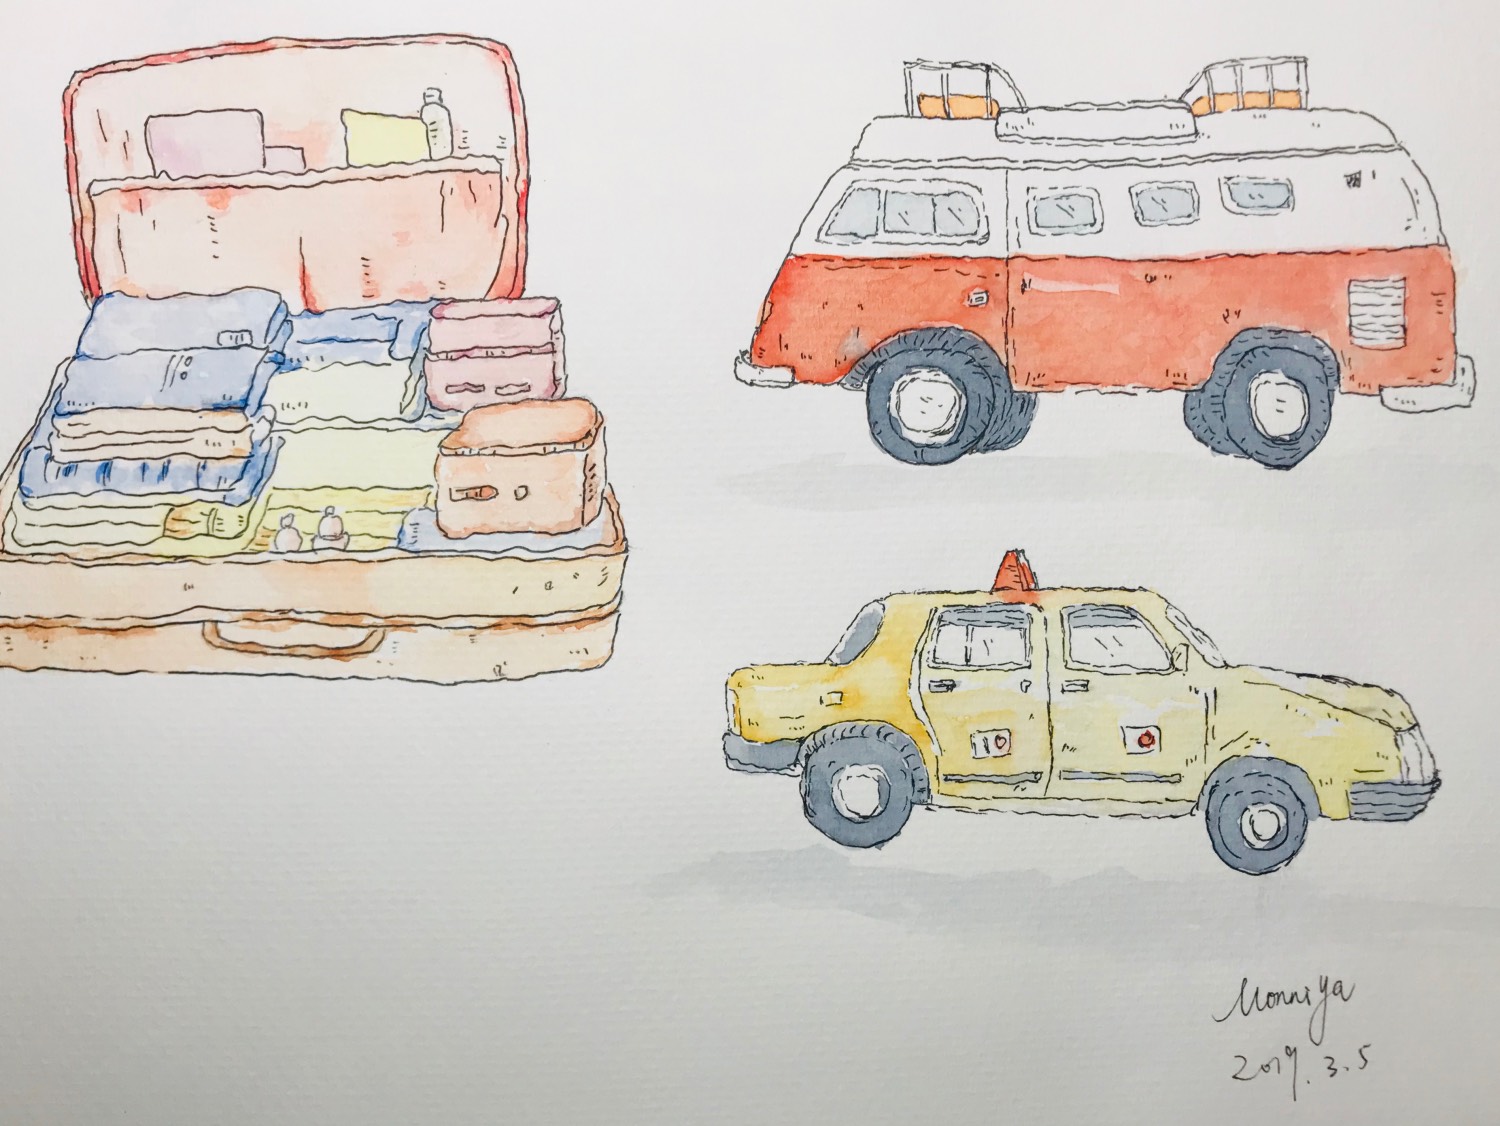 Monniya
2019.3.5